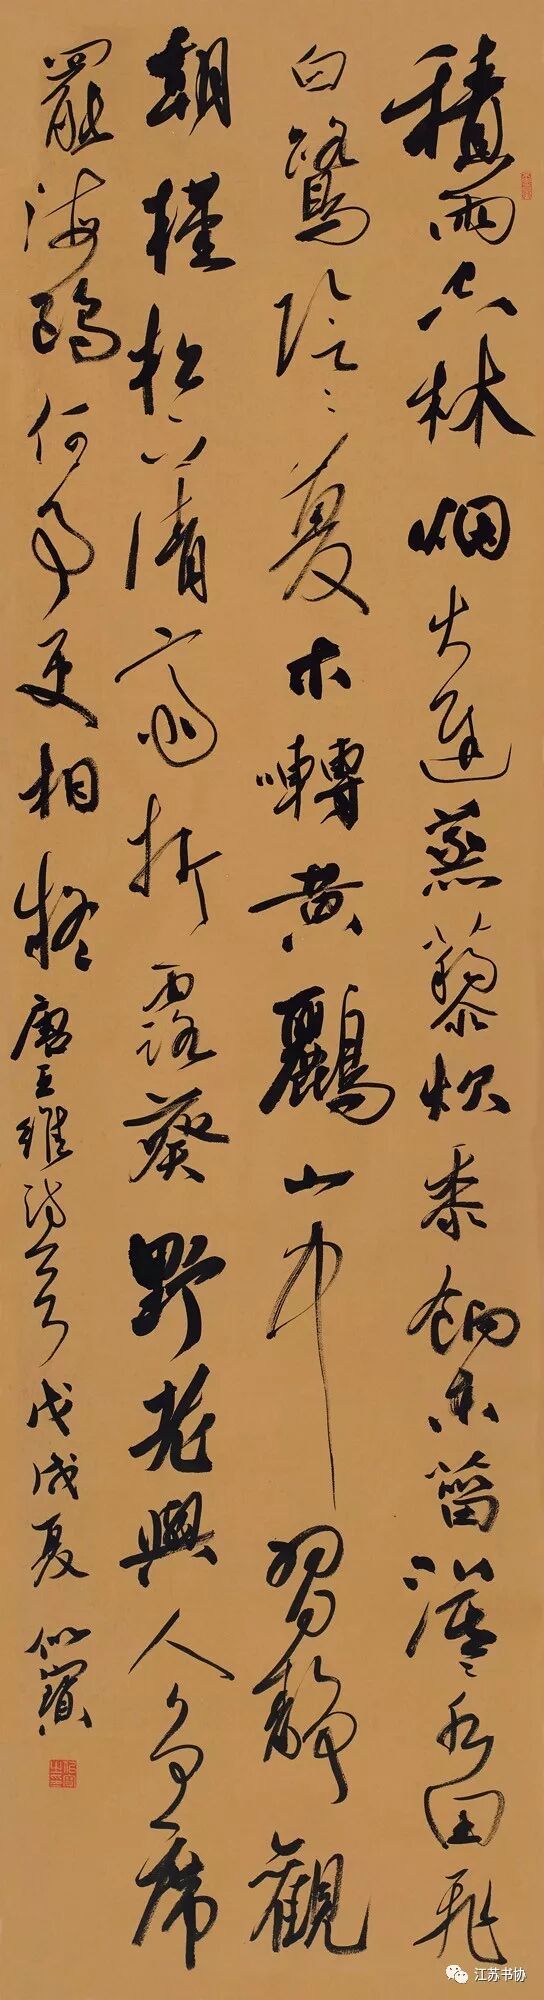 積雨空林烟火遲蒸藜炊黍餉東菑漠〻水田飛
白鷺陰〻夏木囀黄鸝山中習靜觀
朝槿松下清齋折露葵野老與人爭席
罷海鷗何事更相疑唐王維詩一首戊戌夏似寶
江苏书协